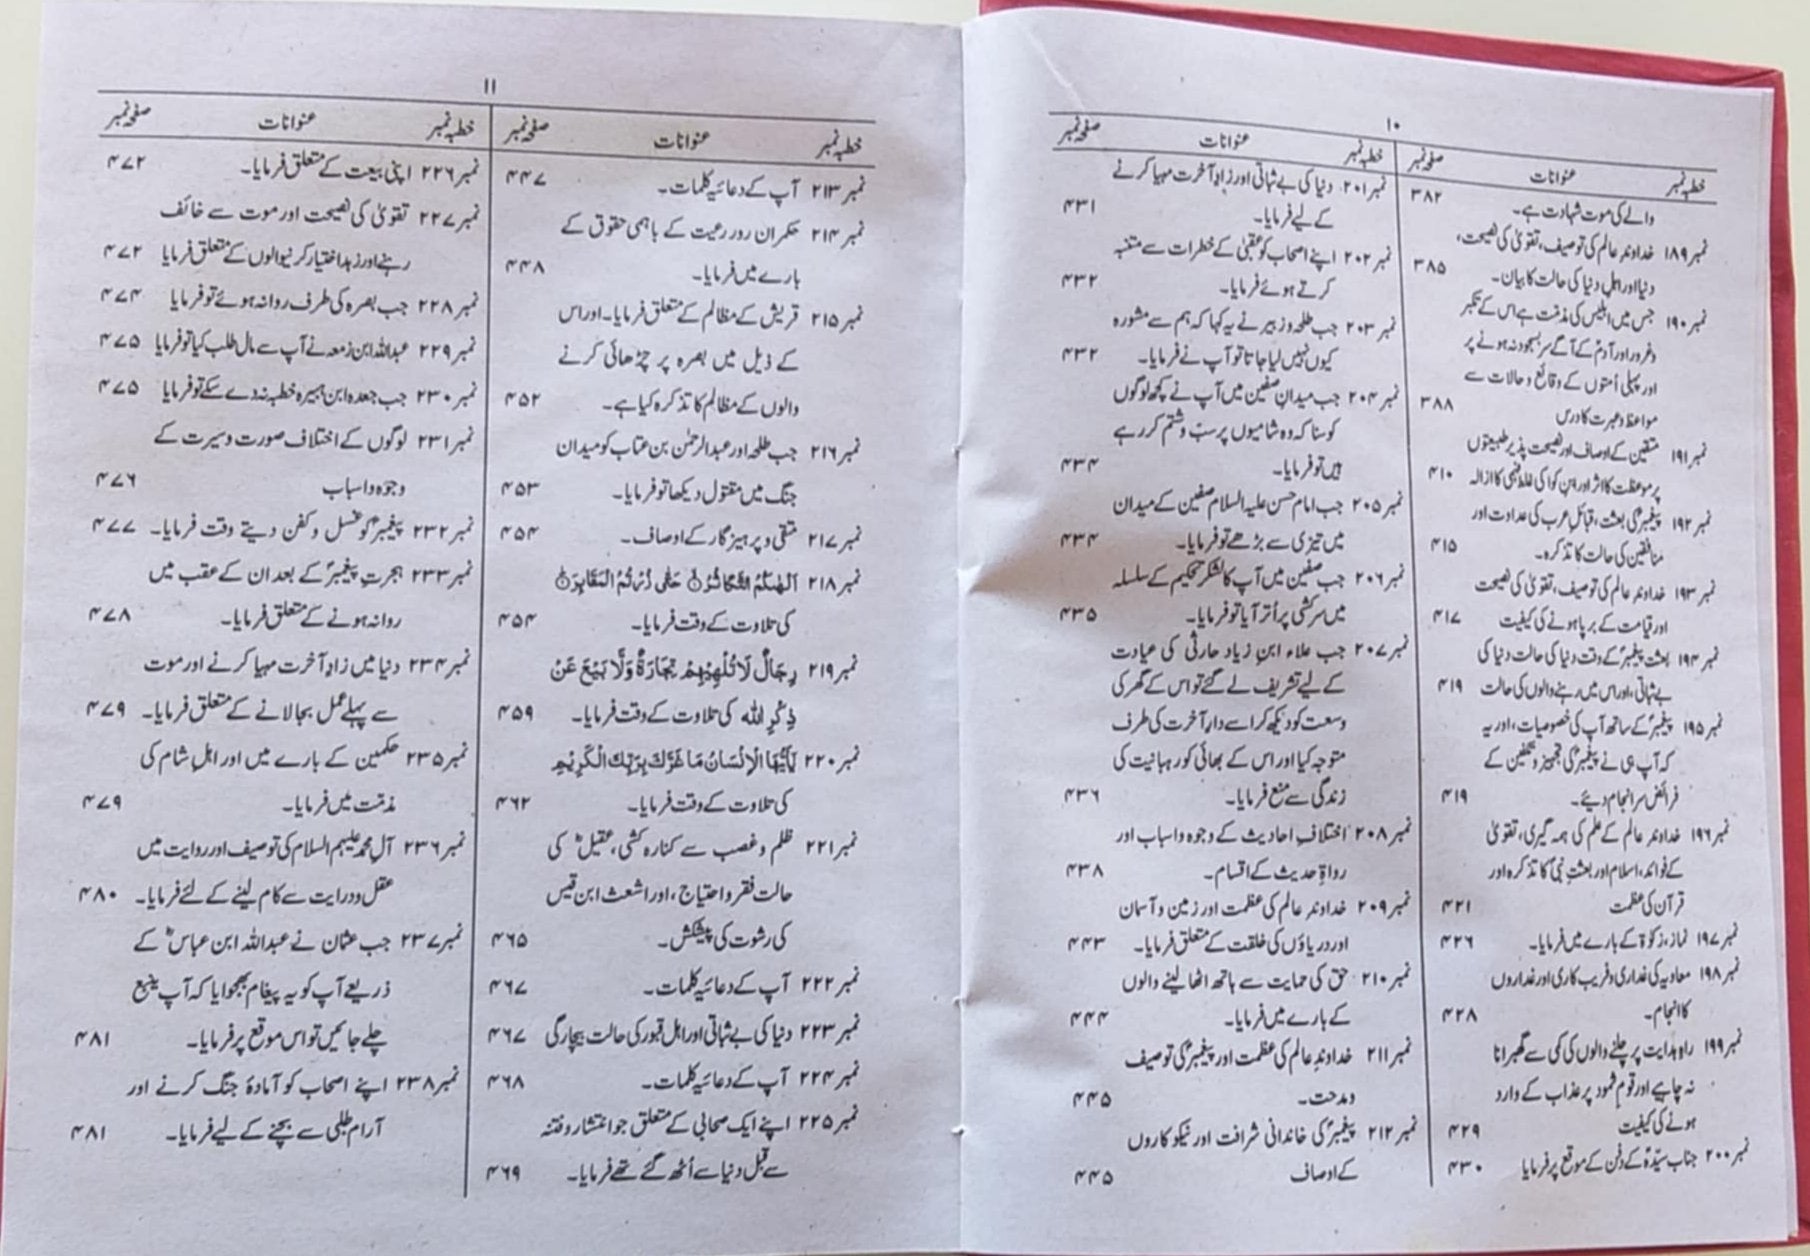 ۱۰
خطبہ نمبر عنوانات صفحہ نمبر
والے کی موت شہادت ہے۔ ۳۸۲
نمبر ۱۸۹ خداوند عالم کی توصیف، تقویٰ کی نصیحت،
دنیا اور اہل دنیا کی حالت کا بیان۔ ۳۸۵
نمبر ۱۹۰ جس میں ابلیس کی مذمت ہے اس کے تکبر
وغرور اور آدمؑ کے آگے سربسجود نہ ہونے پر
اور پہلی اُمتوں کے وقائع و حالات سے
مواعظ و عبرت کا درس ۳۸۸
نمبر ۱۹۱ متقین کے اوصاف اور نصیحت پذیر طبیعتوں
پر موعظت کا اثر اور ابن کوا کی غلط فہمی کا ازالہ ۴۱۰
نمبر ۱۹۲ پیغمبرؐ کی بعثت، قبائل عرب کی عداوت اور
منافقین کی حالت کا تذکرہ۔ ۴۱۵
نمبر ۱۹۳ خداوند عالم کی توصیف، تقویٰ کی نصیحت
اور قیامت کے برپا ہونے کی کیفیت ۴۱۷
نمبر ۱۹۴ بعثت پیغمبرؐ کے وقت دنیا کی حالت دنیا کی
بے ثباتی، اور اس میں رہنے والوں کی حالت ۴۱۹
نمبر ۱۹۵ پیغمبرؐ کے ساتھ آپ کی خصوصیات، اور یہ
کہ آپ ہی نے پیغمبرؐ کی تجہیز و تکفین کے
فرائض سرانجام دیئے۔ ۴۱۹
نمبر ۱۹۶ خداوند عالم کے علم کی ہمہ گیری، تقویٰ
کے فوائد، اسلام اور بعثتِ نبیؐ کا تذکرہ اور
قرآن کی عظمت ۴۲۱
نمبر ۱۹۷ نماز، زکوٰۃ کے بارے میں فرمایا۔ ۴۲۶
نمبر ۱۹۸ معاویہ کی غداری و فریب کاری اور غداروں
کا انجام۔ ۴۲۸
نمبر ۱۹۹ راہ ہدایت پر چلنے والوں کی کمی سے گھبرانا
نہ چاہیے اور قوم ثمود پر عذاب کے وارد
ہونے کی کیفیت ۴۲۹
نمبر ۲۰۰ جناب سیّدہؑ کے دفن کے موقع پر فرمایا ۴۳۰
خطبہ نمبر عنوانات صفحہ نمبر
نمبر ۲۰۱ دنیا کی بے ثباتی اور زادِ آخرت مہیا کرنے
کے لیے فرمایا۔ ۴۳۱
نمبر ۲۰۲ اپنے اصحاب کو عقبیٰ کے خطرات سے متنبہ
کرتے ہوئے فرمایا۔ ۴۳۲
نمبر ۲۰۳ جب طلحہ و زبیر نے یہ کہا کہ ہم سے مشورہ
کیوں نہیں لیا جاتا تو آپ نے فرمایا۔ ۴۳۲
نمبر ۲۰۴ جب میدانِ صفین میں آپ نے کچھ لوگوں
کو سنا کہ وہ شامیوں پر سبّ و شتم کر رہے
ہیں تو فرمایا۔ ۴۳۴
نمبر ۲۰۵ جب امام حسن علیہ السلام صفین کے میدان
میں تیزی سے بڑھے تو فرمایا۔ ۴۳۴
نمبر ۲۰۶ جب صفین میں آپ کا لشکر تحکیم کے سلسلہ
میں سرکشی پر اُتر آیا تو فرمایا۔ ۴۳۵
نمبر ۲۰۷ جب علاء ابن زیاد حارثی کی عیادت
کے لیے تشریف لے گئے تو اس کے گھر کی
وسعت کو دیکھ کر اسے دارِ آخرت کی طرف
متوجہ کیا اور اس کے بھائی کو رہبانیت کی
زندگی سے منع فرمایا۔ ۴۳۶
نمبر ۲۰۸ اختلافِ احادیث کے وجوہ و اسباب اور
رواۃِ حدیث کے اقسام۔ ۴۳۸
نمبر ۲۰۹ خداوند عالم کی عظمت اور زمین و آسمان
اور دریاؤں کی خلقت کے متعلق فرمایا۔ ۴۴۳
نمبر ۲۱۰ حق کی حمایت سے ہاتھ اٹھا لینے والوں
کے بارے میں فرمایا۔ ۴۴۴
نمبر ۲۱۱ خداوند عالم کی عظمت اور پیغمبرؐ کی توصیف
ومدحت۔ ۴۴۵
نمبر ۲۱۲ پیغمبرؐ کی خاندانی شرافت اور نیکوکاروں
کے اوصاف ۴۴۵
۱۱
خطبہ نمبر عنوانات صفحہ نمبر
نمبر ۲۱۳ آپ کے دعائیہ کلمات۔ ۴۴۷
نمبر ۲۱۴ حکمران رور رعیت کے باہمی حقوق کے
بارے میں فرمایا۔ ۴۴۸
نمبر ۲۱۵ قریش کے مظالم کے متعلق فرمایا۔ اور اس
کے ذیل میں بصرہ پر چڑھائی کرنے
والوں کے مظالم کا تذکرہ کیا ہے۔ ۴۵۲
نمبر ۲۱۶ جب طلحہ اور عبدالرحمٰن بن عتاب کو میدان
جنگ میں مقتول دیکھا تو فرمایا۔ ۴۵۳
نمبر ۲۱۷ متقی و پرہیزگار کے اوصاف۔ ۴۵۴
نمبر ۲۱۸ اَلْهٰىكُمُ التَّكَاثُرُ حَتّٰى زُرْتُمُ الْمَقَابِرَ
کی تلاوت کے وقت فرمایا۔ ۴۵۴
نمبر ۲۱۹ رِجَالٌ لَا تُلْهِيْهِمْ تِجَارَةٌ وَّلَا بَيْعٌ عَنْ
ذِكْرِ الله کی تلاوت کے وقت فرمایا۔ ۴۵۹
نمبر ۲۲۰ يٰۤاَيُّهَا الْاِنْسَانُ مَا غَرَّكَ بِرَبِّكَ الْكَرِيْمِ
کی تلاوت کے وقت فرمایا۔ ۴۶۲
نمبر ۲۲۱ ظلم و غصب سے کنارہ کشی، عقیلؓ کی
حالت فقر و احتیاج، اور اشعث ابن قیس
کی رشوت کی پیشکش۔ ۴۶۵
نمبر ۲۲۲ آپ کے دعائیہ کلمات۔ ۴۶۷
نمبر ۲۲۳ دنیا کی بے ثباتی اور اہل قبور کی حالت بیچارگی ۴۶۷
نمبر ۲۲۴ آپ کے دعائیہ کلمات۔ ۴۶۸
نمبر ۲۲۵ اپنے ایک صحابی کے متعلق جو انتشار و فتنہ
سے قبل دنیا سے اُٹھ گئے تھے فرمایا۔ ۴۶۹
خطبہ نمبر عنوانات صفحہ نمبر
نمبر ۲۲۶ اپنی بیعت کے متعلق فرمایا۔ ۴۷۲
نمبر ۲۲۷ تقویٰ کی نصیحت اور موت سے خائف
رہنے اور زہد اختیار کرنیوالوں کے متعلق فرمایا ۴۷۲
نمبر ۲۲۸ جب بصرہ کی طرف روانہ ہوئے تو فرمایا ۴۷۴
نمبر ۲۲۹ عبداللہ ابن زمعہ نے آپ سے مال طلب کیا تو فرمایا ۴۷۵
نمبر ۲۳۰ جب جعدہ ابن ہبیرہ خطبہ نہ دے سکے تو فرمایا ۴۷۵
نمبر ۲۳۱ لوگوں کے اختلاف صورت و سیرت کے
وجوہ و اسباب ۴۷۶
نمبر ۲۳۲ پیغمبرؐ کو غسل و کفن دیتے وقت فرمایا۔ ۴۷۷
نمبر ۲۳۳ ہجرتِ پیغمبرؐ کے بعد ان کے عقب میں
روانہ ہونے کے متعلق فرمایا۔ ۴۷۸
نمبر ۲۳۴ دنیا میں زادِ آخرت مہیا کرنے اور موت
سے پہلے عمل بجا لانے کے متعلق فرمایا۔ ۴۷۹
نمبر ۲۳۵ حکمین کے بارے میں اور اہلِ شام کی
مذمت میں فرمایا۔ ۴۷۹
نمبر ۲۳۶ آلِ محمد علیہم السلام کی توصیف اور روایت میں
عقل و درایت سے کام لینے کے لئے فرمایا۔ ۴۸۰
نمبر ۲۳۷ جب عثمان نے عبداللہ ابن عباسؓ کے
ذریعے آپ کو یہ پیغام بھجوایا کہ آپ ینبع
چلے جائیں تو اس موقع پر فرمایا۔ ۴۸۱
نمبر ۲۳۸ اپنے اصحاب کو آمادۂ جنگ کرنے اور
آرام طلبی سے بچنے کے لیے فرمایا۔ ۴۸۱